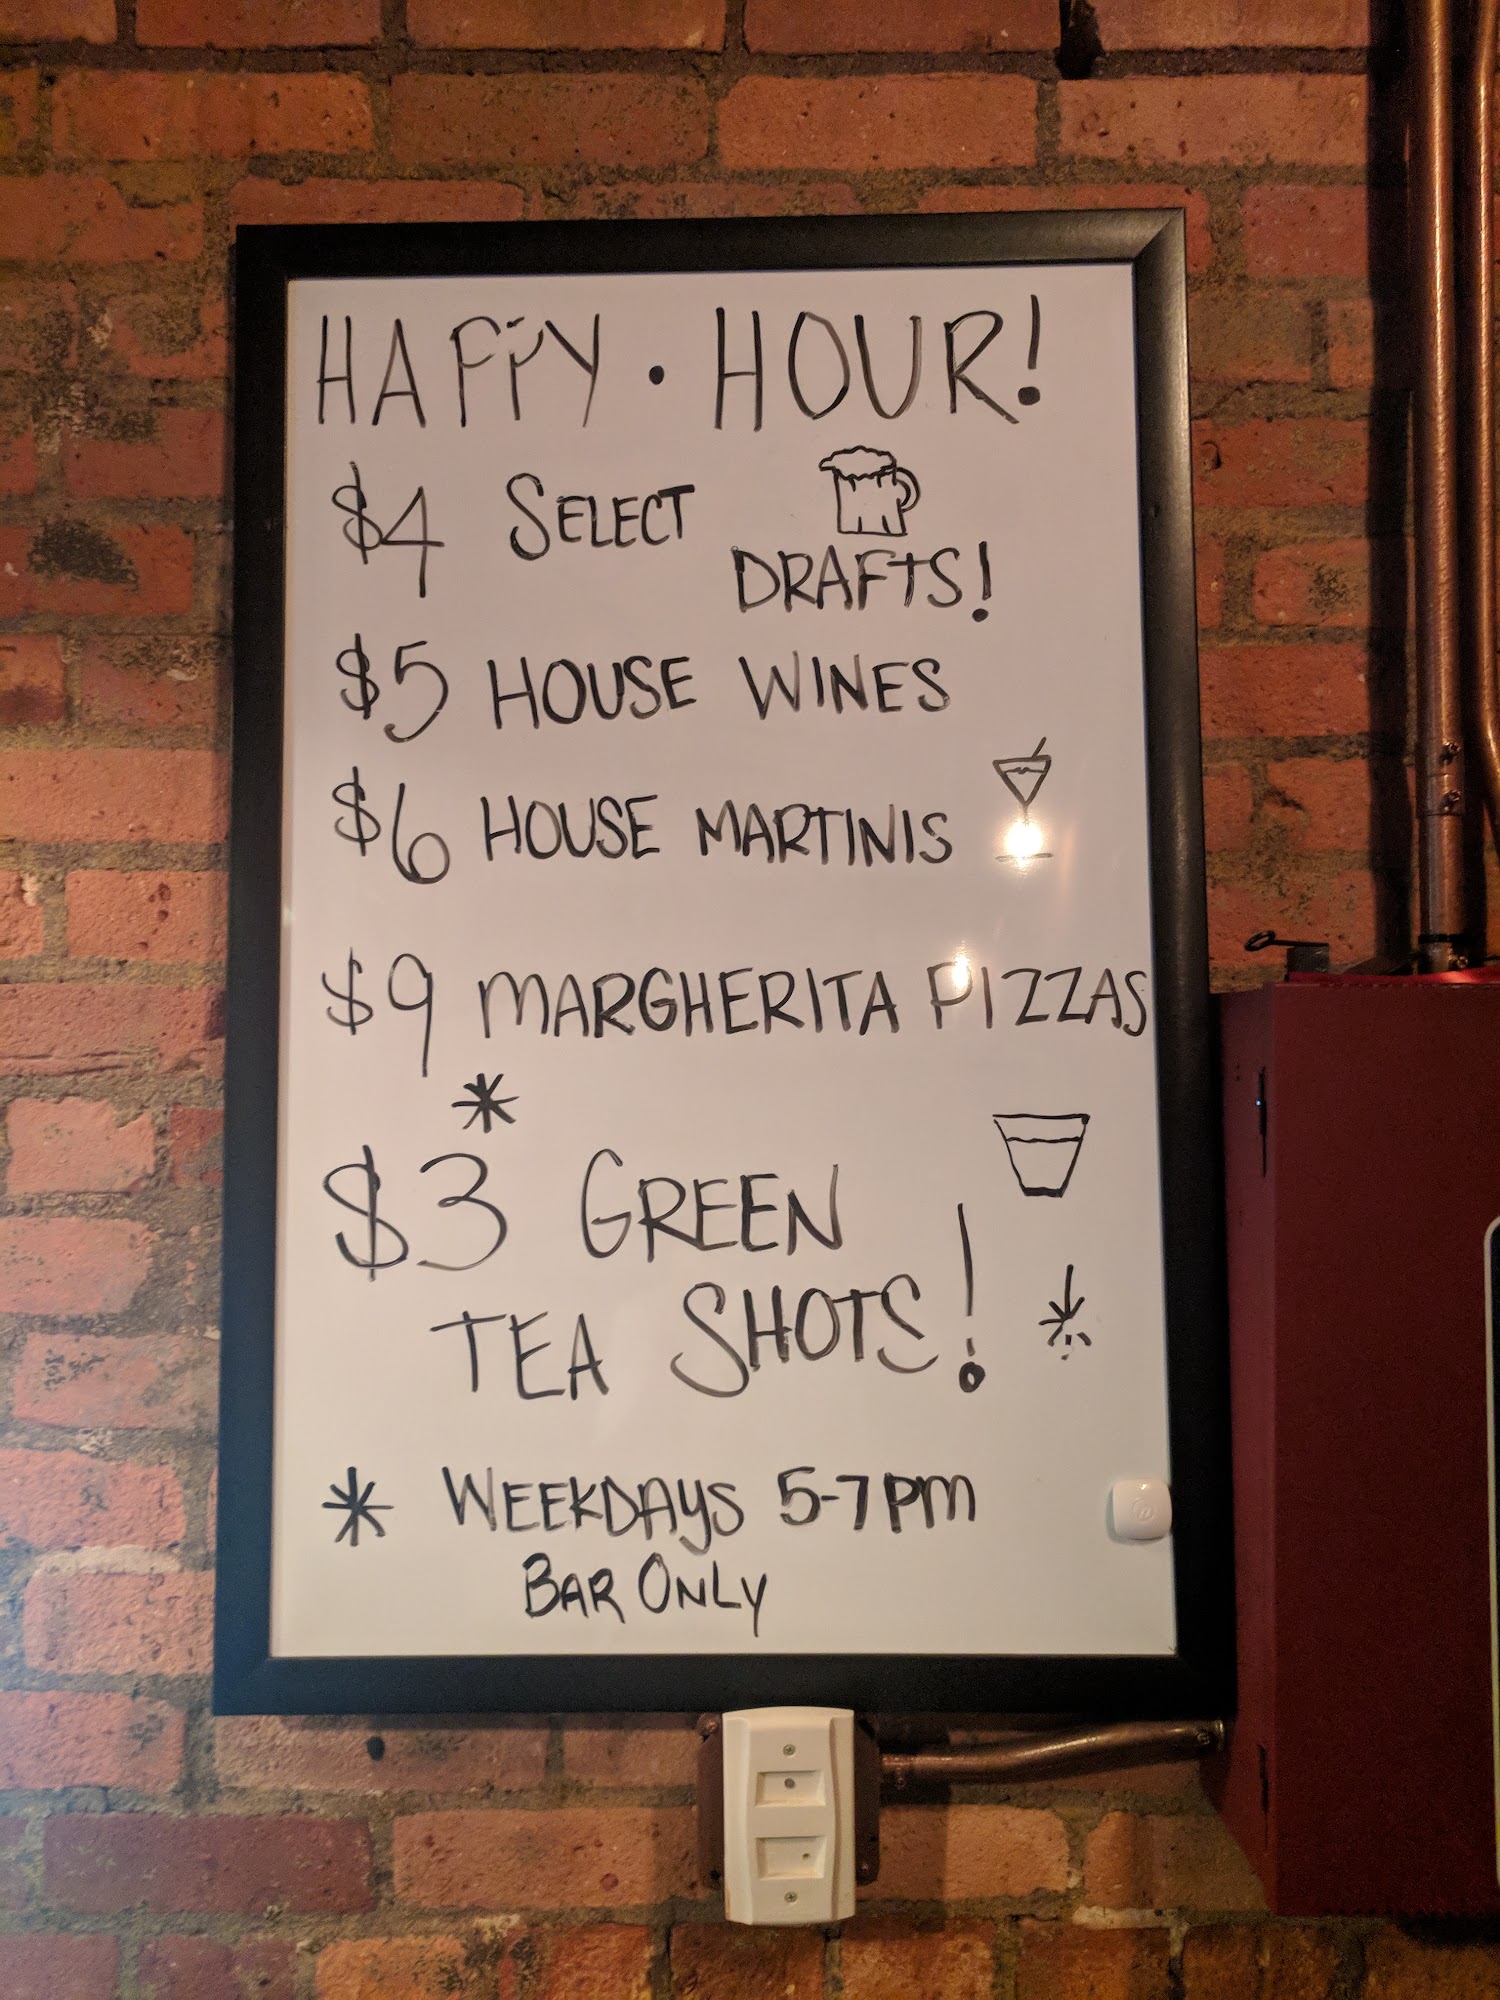 HAPPY · HOUR!
$4 SELECT
DRAFTS!
$5 HOUSE WINES
$6 HOUSE MARTINIS
$9 MARGHERITA PIZZAS
*
$3 GREEN
TEA SHOTS! *
* WEEKDAYS 5-7PM
BAR ONLY